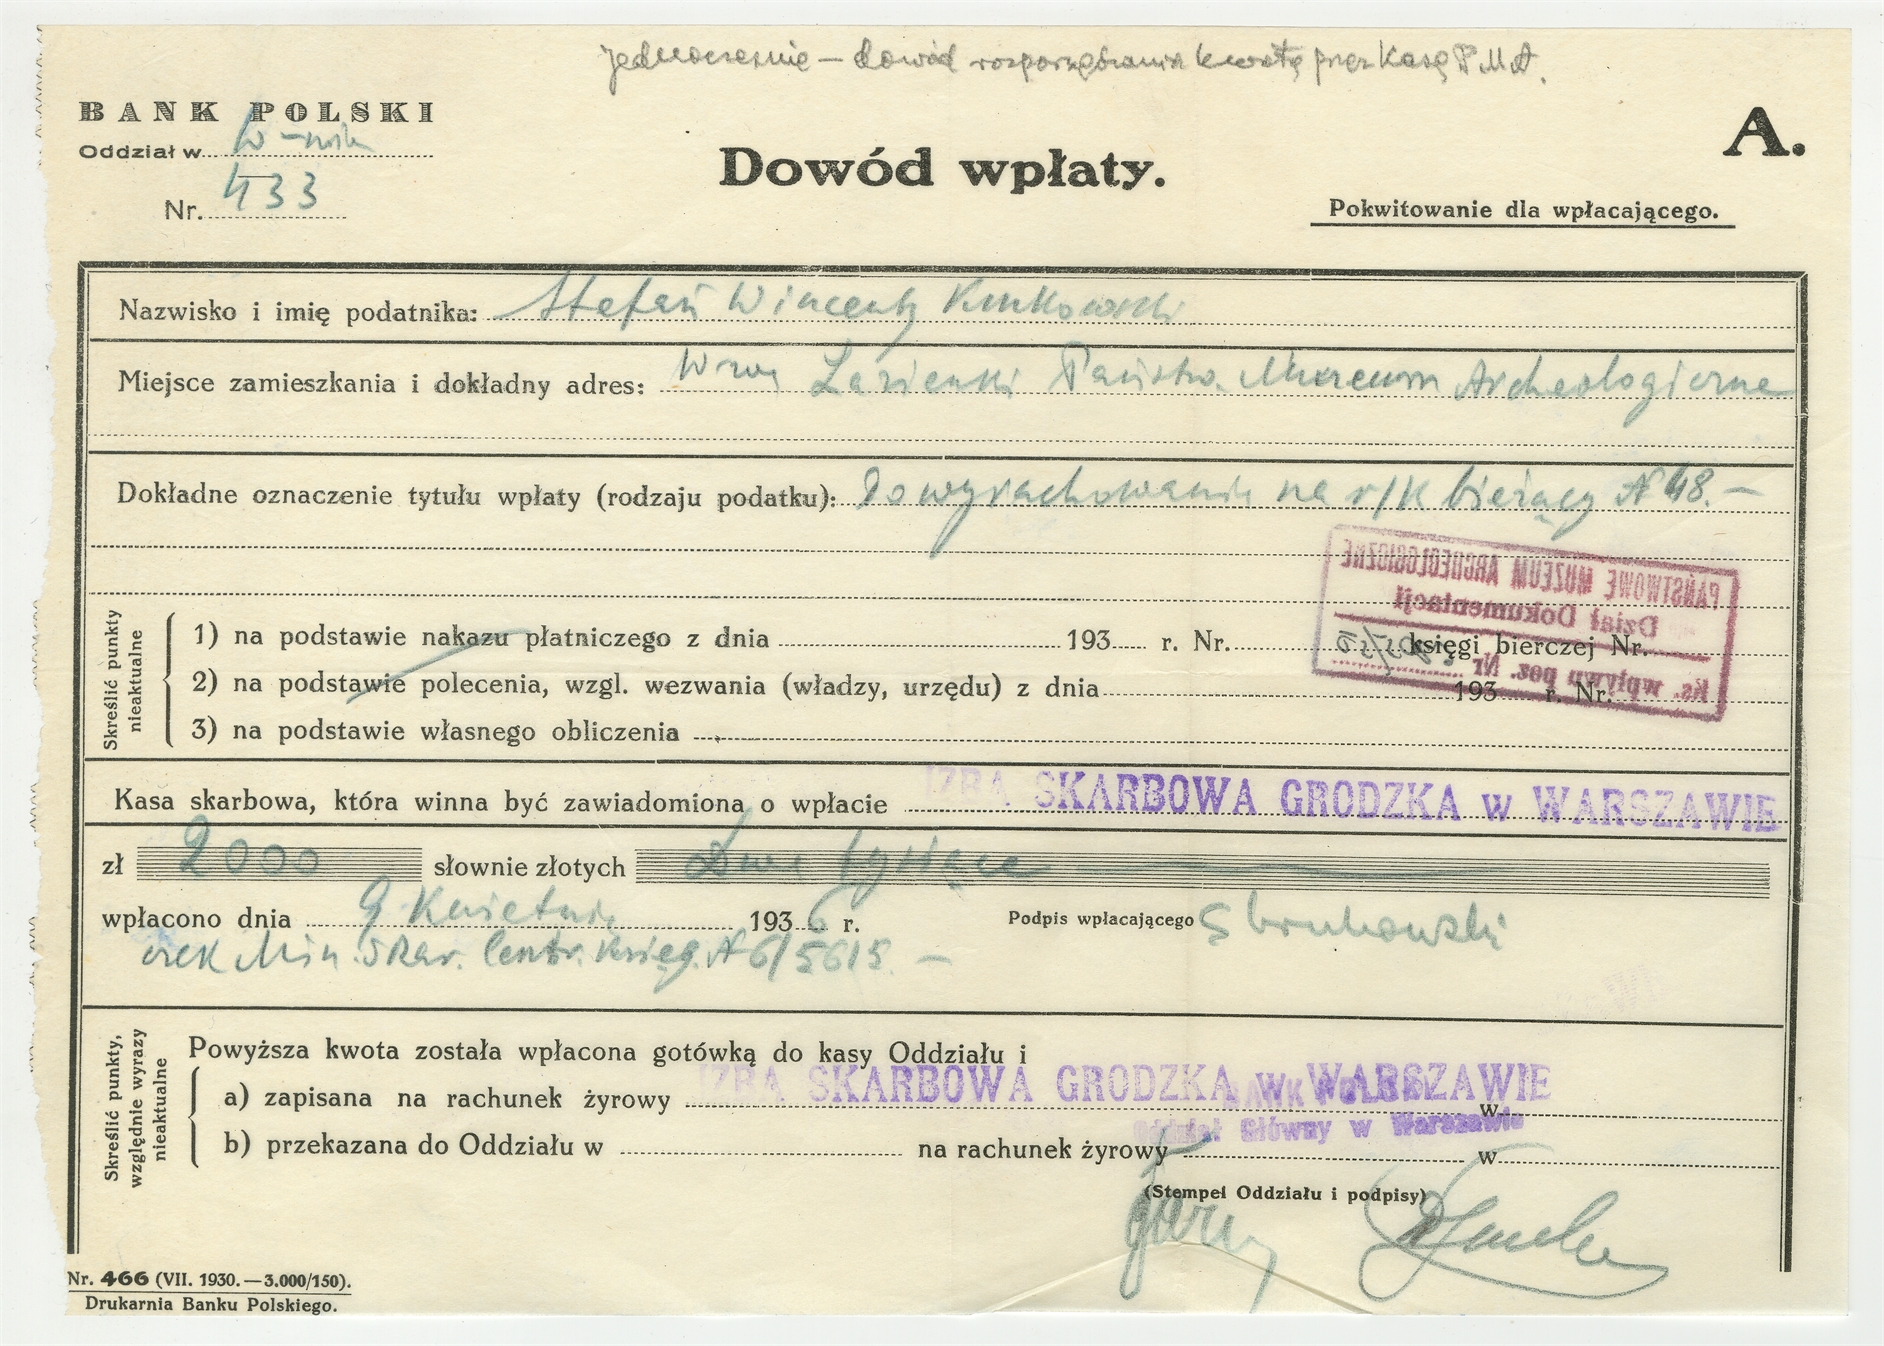 jednocześnie – dowód rozporządzania kwotą przez Kasę P.M.A.
BANK POLSKI
Oddział w
Nr. 433
Dowód wpłaty.
A.
Pokwitowanie dla wpłacającego.
Nazwisko i imię podatnika: Stefan Wincenty
Miejsce zamieszkania i dokładny adres: Łazienki Państw. Muzeum Archeologiczne
Dokładne oznaczenie tytułu wpłaty (rodzaju podatku): Do wyrachowania na r/k bieżący N 48. –
PAŃSTWOWE MUZEUM ARCHEOLOGICZNE
Dział Dokumentacji
Ks. wpływu poz. Nr
Skreślić punkty nieaktualne
1) na podstawie nakazu płatniczego z dnia 193 r. Nr. księgi bierczej Nr.
2) na podstawie polecenia, wzgl. wezwania (władzy, urzędu) z dnia 193 r. Nr.
3) na podstawie własnego obliczenia
Kasa skarbowa, która winna być zawiadomiona o wpłacie IZBA SKARBOWA GRODZKA w WARSZAWIE
zł 2000 słownie złotych Dwa tysiące
wpłacono dnia 9 Kwietnia 1936 r. Podpis wpłacającego
czek Min. Skar. Centr. Księg. N 6/5615. –
Skreślić punkty, względnie wyrazy nieaktualne
Powyższa kwota została wpłacona gotówką do kasy Oddziału i
a) zapisana na rachunek żyrowy IZBA SKARBOWA GRODZKA w WARSZAWIE w
BANK POLSKI
Oddział Główny w Warszawie
b) przekazana do Oddziału w na rachunek żyrowy w
(Stempel Oddziału i podpisy)
Nr. 466 (VII. 1930.—3.000/150).
Drukarnia Banku Polskiego.